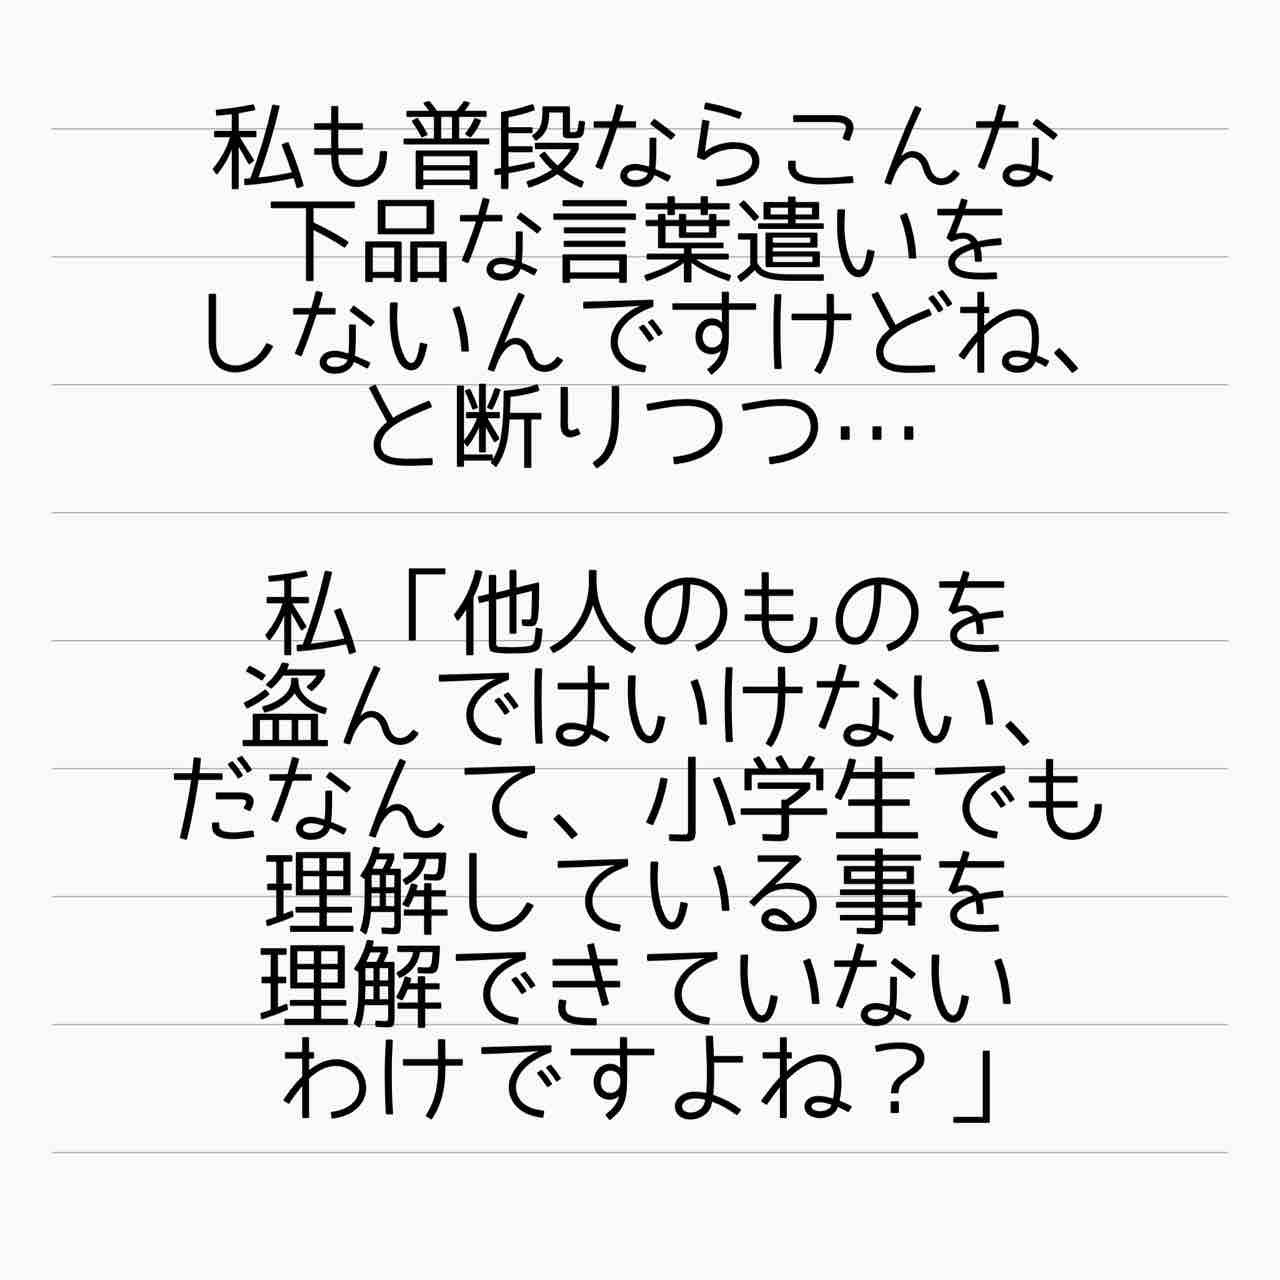 私も普段ならこんな
下品な言葉遣いを
しないんですけどね、
と断りつつ…
私「他人のものを
盗んではいけない、
だなんて、小学生でも
理解している事を
理解できていない
わけですよね？」